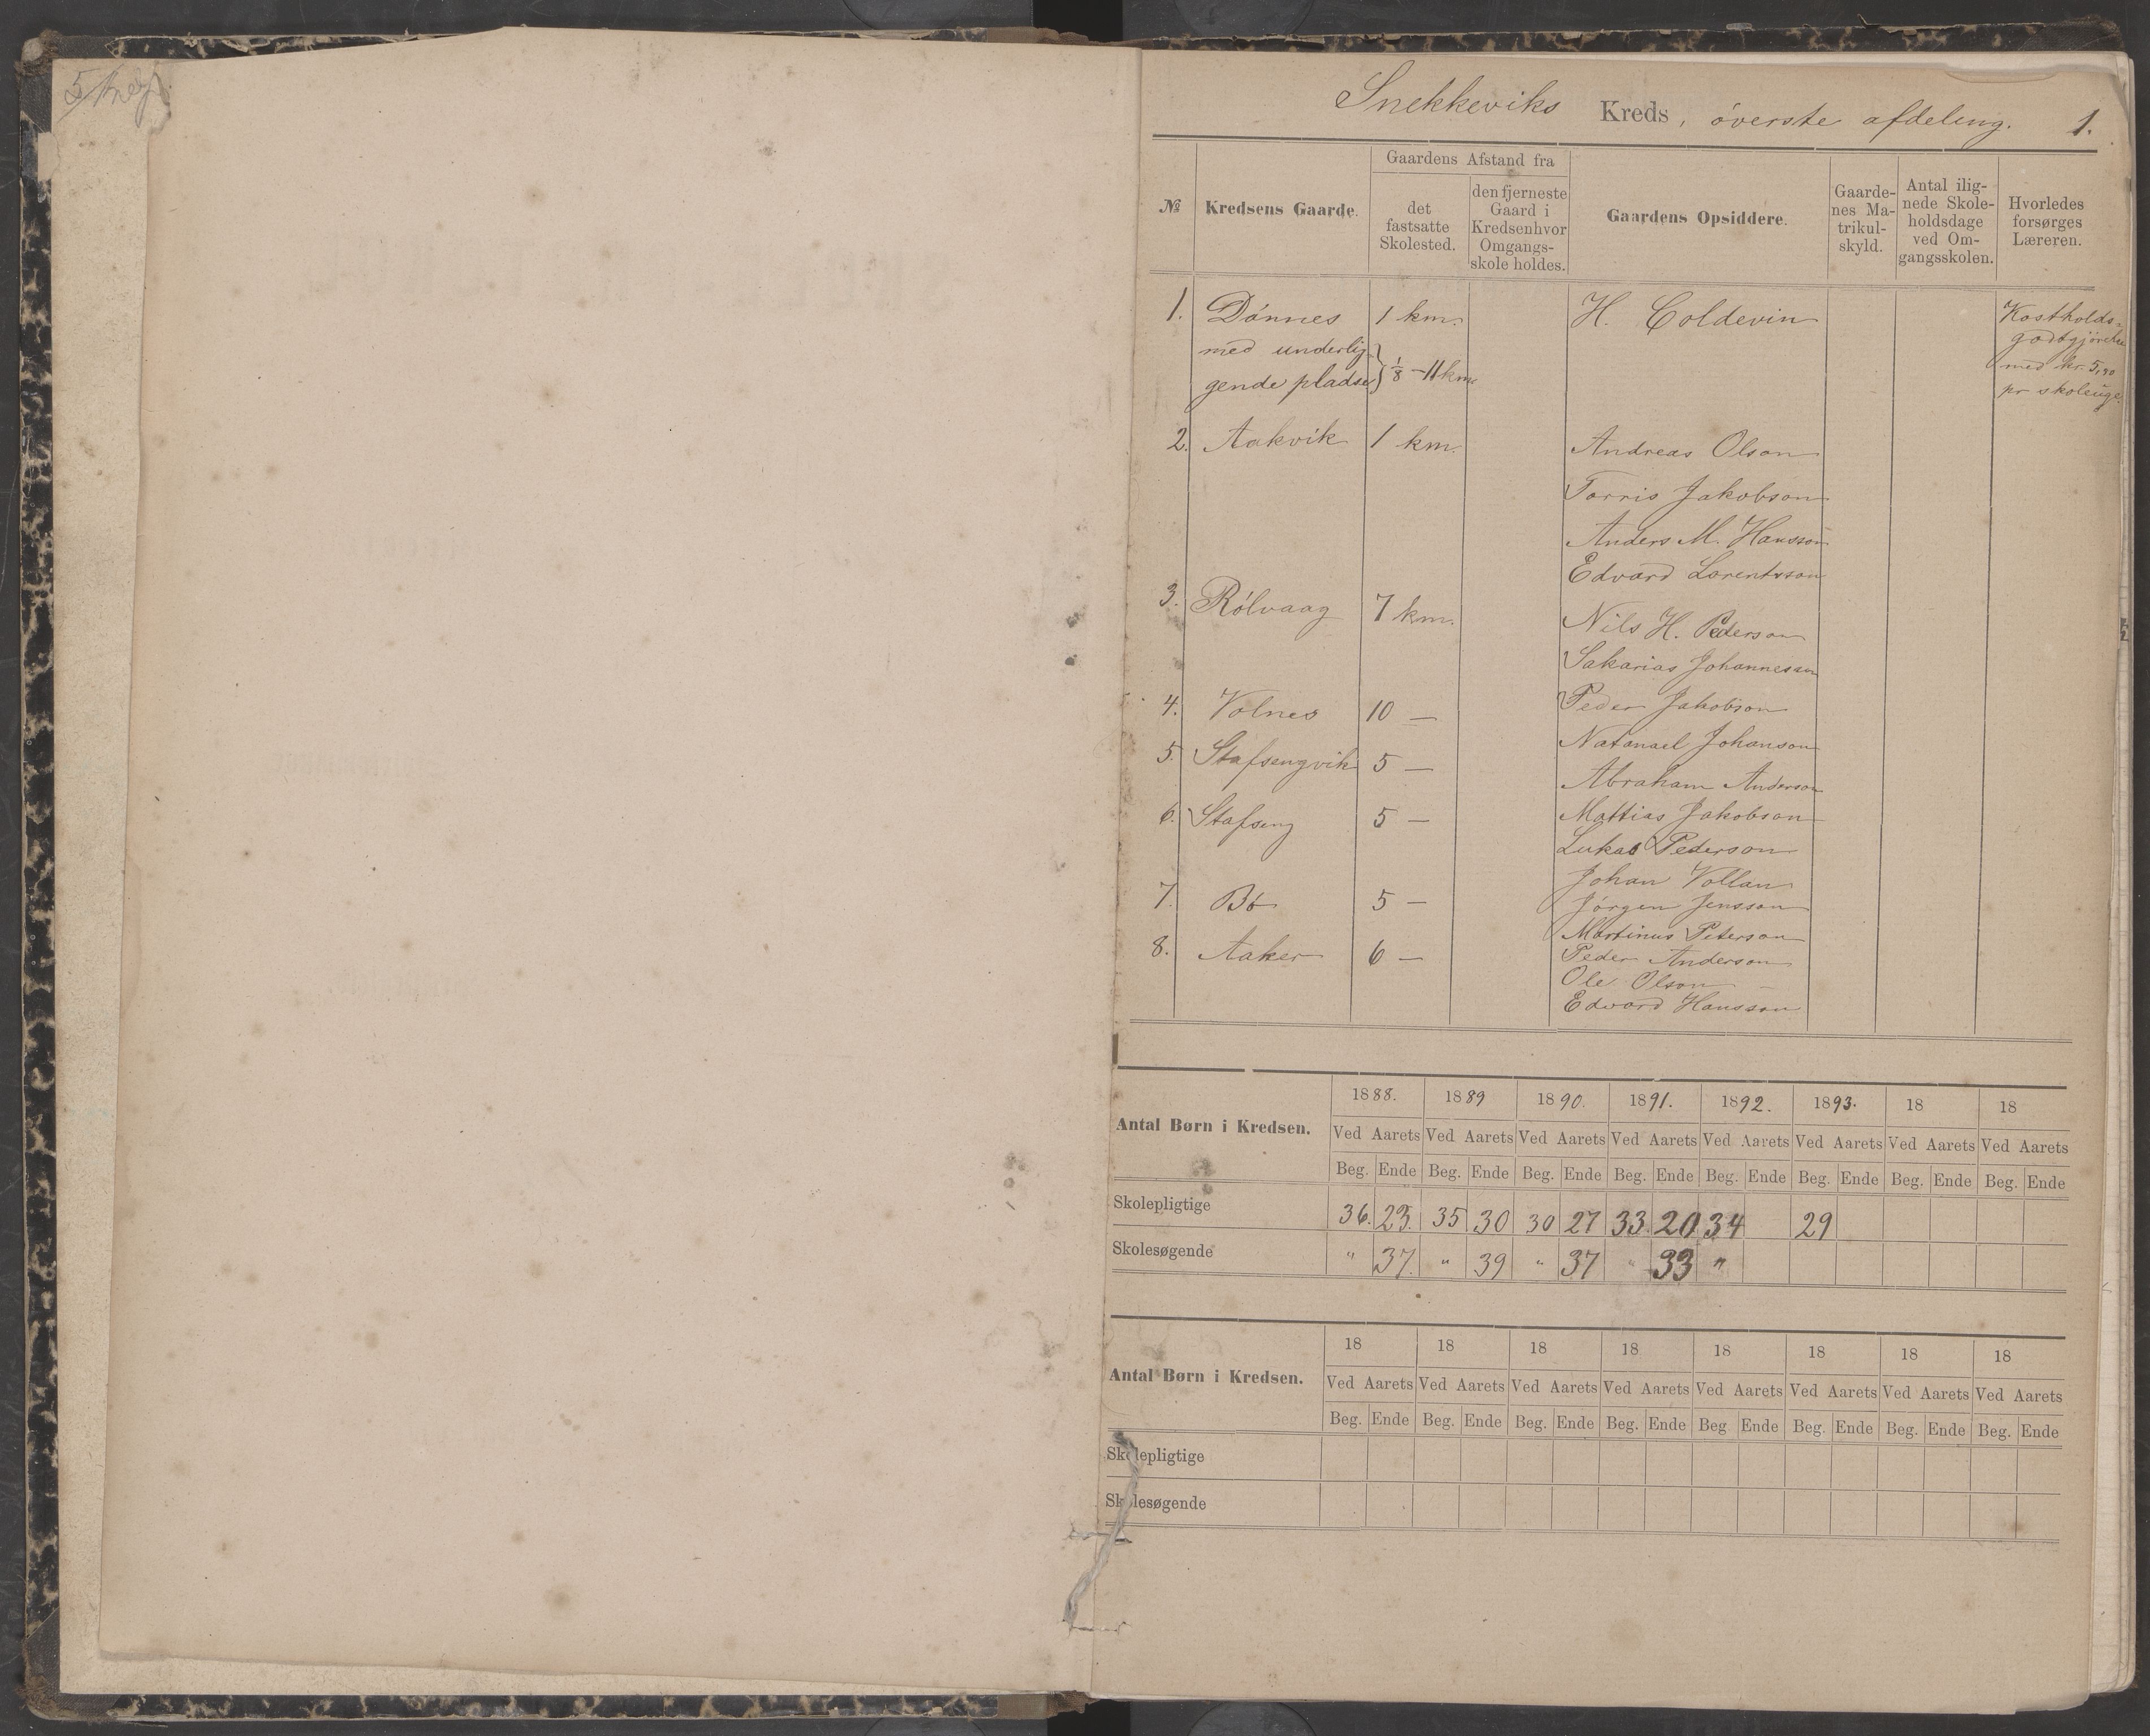 Snekkeviks Kreds, óverste afdeling. 1.
№ Kredsens Gaarde. Gaardens Afstand fra det fastsatte Skolested. den fjerneste Gaard i Kredsen hvor Omgangsskole holdes. Gaardens Opsiddere. Gaardenes Matrikulskyld. Antal ilignede Skoleholdsdage ved Omgangsskolen. Hvorledes forsørges Læreren.
1. Dónnes 1 km. H. Coldevin Kostholds-
med underlig- godtgjórelse
gende pladse } 1/8 – 11 km. med kr. 5,90
pr skoleuge.
2. Aakvik 1 km. Andreas Olson
Torris Jakobson
Anders M. Hansson
Edvard Lorentsson
3. Rólvaag 7 km. Nils H. Pederson
Sakarias Johannesson
4. Volnes 10 — Peder Jakobson
Natanael Johanson
5. Stafsengvik 5 — Abraham Anderson
6. Stafseng 5 — Mattias Jakobson
Lukas Pederson
Johan Vollan
7. Bó 5 — Jórgen Jensson
Martinus Peterson
8. Aaker 6 — Peder Anderson
Ole Olson
Edvard Hansson
Antal Børn i Kredsen. 1888. 1889 1890. 1891. 1892. 1893. 18 18
Ved Aarets Ved Aarets Ved Aarets Ved Aarets Ved Aarets Ved Aarets Ved Aarets Ved Aarets
Beg. Ende Beg. Ende Beg. Ende Beg. Ende Beg. Ende Beg. Ende Beg. Ende Beg. Ende
Skolepligtige 36. 23. 35 30 30 27 33. 20 34 29
Skolesøgende " 37. " 39 " 37 " 33 "
Antal Børn i Kredsen. 18 18 18 18 18 18 18 18
Ved Aarets Ved Aarets Ved Aarets Ved Aarets Ved Aarets Ved Aarets Ved Aarets Ved Aarets
Beg. Ende Beg. Ende Beg. Ende Beg. Ende Beg Ende Beg. Ende Beg. Ende Beg. Ende
Skolepligtige
Skolesøgende